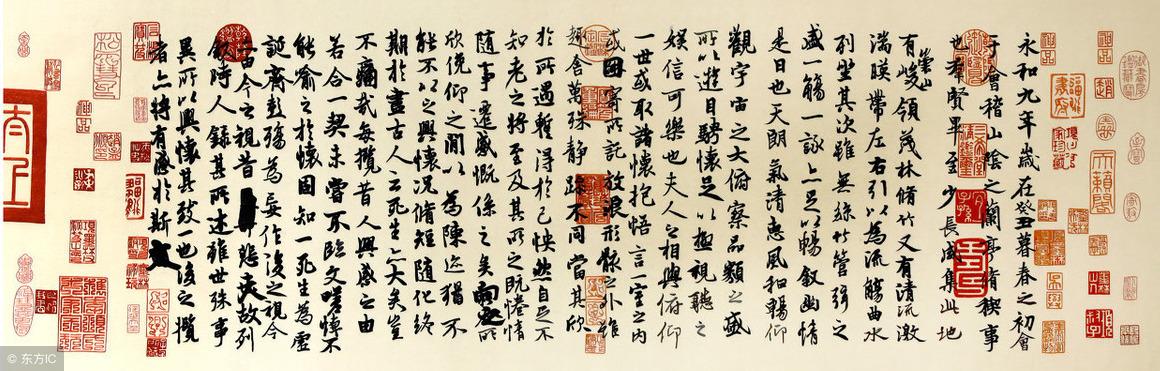 永和九年歲在癸丑暮春之初會
于會稽山陰之蘭亭脩稧事
也羣賢畢至少長咸集此地
有崇山峻領茂林脩竹又有清流激
湍暎帶左右引以為流觴曲水
列坐其次雖無絲竹管弦之
盛一觴一詠亦足以暢敘幽情
是日也天朗氣清惠風和暢仰
觀宇宙之大俯察品類之盛
所以遊目騁懷足以極視聽之
娛信可樂也夫人之相與俯仰
一世或取諸懷抱悟言一室之內
或因寄所託放浪形骸之外雖
趣舍萬殊靜躁不同當其欣
於所遇蹔得於己怏然自足不
知老之將至及其所之既惓情
隨事遷感慨係之矣向之所
欣俛仰之間以為陳迹猶不
能不以之興懷況脩短隨化終
期於盡古人云死生亦大矣豈
不痛哉每攬昔人興感之由
若合一契未嘗不臨文嗟悼不
能喻之於懷固知一死生為虛
誕齊彭殤為妄作後之視今
亦由今之視昔悲夫故列
敘時人錄其所述雖世殊事
異所以興懷其致一也後之攬
者亦將有感於斯文
© 东方IC